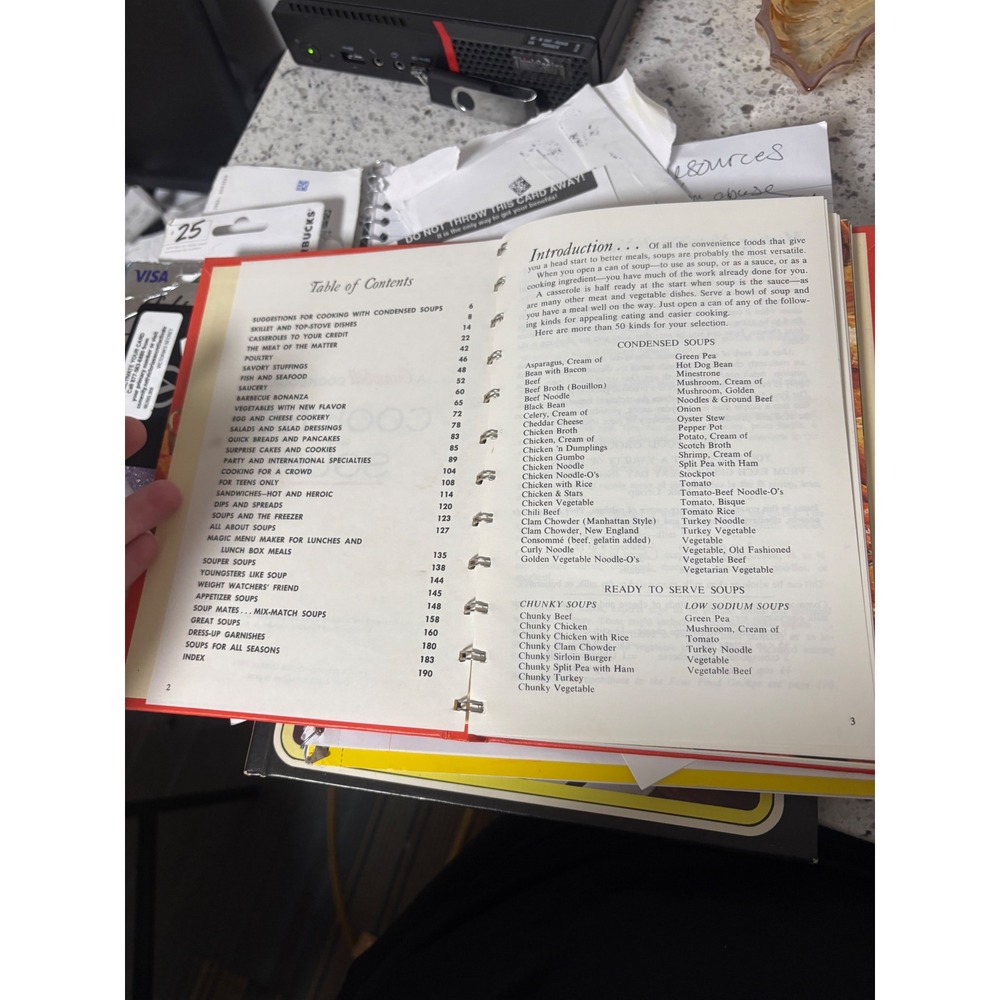 25
STARBUCKS
VISA
DO NOT THROW THIS CARD AWAY!
It is the only way to get your benefits!
Table of Contents
SUGGESTIONS FOR COOKING WITH CONDENSED SOUPS 6
SKILLET AND TOP-STOVE DISHES 8
CASSEROLES TO YOUR CREDIT 14
THE MEAT OF THE MATTER 22
POULTRY 42
SAVORY STUFFINGS 46
FISH AND SEAFOOD 48
SAUCERY 52
BARBECUE BONANZA 60
VEGETABLES WITH NEW FLAVOR 65
EGG AND CHEESE COOKERY 72
SALADS AND SALAD DRESSINGS 78
QUICK BREADS AND PANCAKES 83
SURPRISE CAKES AND COOKIES 85
PARTY AND INTERNATIONAL SPECIALTIES 89
COOKING FOR A CROWD 104
FOR TEENS ONLY 108
SANDWICHES—HOT AND HEROIC 114
DIPS AND SPREADS 120
SOUPS AND THE FREEZER 123
ALL ABOUT SOUPS 127
MAGIC MENU MAKER FOR LUNCHES AND
LUNCH BOX MEALS 135
SOUPER SOUPS 138
YOUNGSTERS LIKE SOUP 144
WEIGHT WATCHERS' FRIEND 145
APPETIZER SOUPS 148
SOUP MATES . . . MIX-MATCH SOUPS 158
GREAT SOUPS 160
DRESS-UP GARNISHES 180
SOUPS FOR ALL SEASONS 183
INDEX 190
2
Introduction . . . Of all the convenience foods that give
you a head start to better meals, soups are probably the most versatile.
When you open a can of soup—to use as soup, or as a sauce, or as a
cooking ingredient—you have much of the work already done for you.
A casserole is half ready at the start when soup is the sauce—as
are many other meat and vegetable dishes. Serve a bowl of soup and
you have a meal well on the way. Just open a can of any of the follow-
ing kinds for appealing eating and easier cooking.
Here are more than 50 kinds for your selection.
CONDENSED SOUPS
Asparagus, Cream of
Bean with Bacon
Beef
Beef Broth (Bouillon)
Beef Noodle
Black Bean
Celery, Cream of
Cheddar Cheese
Chicken Broth
Chicken, Cream of
Chicken 'n Dumplings
Chicken Gumbo
Chicken Noodle
Chicken Noodle-O's
Chicken with Rice
Chicken & Stars
Chicken Vegetable
Chili Beef
Clam Chowder (Manhattan Style)
Clam Chowder, New England
Consommé (beef, gelatin added)
Curly Noodle
Golden Vegetable Noodle-O's
Green Pea
Hot Dog Bean
Minestrone
Mushroom, Cream of
Mushroom, Golden
Noodles & Ground Beef
Onion
Oyster Stew
Pepper Pot
Potato, Cream of
Scotch Broth
Shrimp, Cream of
Split Pea with Ham
Stockpot
Tomato
Tomato-Beef Noodle-O's
Tomato, Bisque
Tomato Rice
Turkey Noodle
Turkey Vegetable
Vegetable
Vegetable, Old Fashioned
Vegetable Beef
Vegetarian Vegetable
READY TO SERVE SOUPS
CHUNKY SOUPS
Chunky Beef
Chunky Chicken
Chunky Chicken with Rice
Chunky Clam Chowder
Chunky Sirloin Burger
Chunky Split Pea with Ham
Chunky Turkey
Chunky Vegetable
LOW SODIUM SOUPS
Green Pea
Mushroom, Cream of
Tomato
Turkey Noodle
Vegetable
Vegetable Beef
3